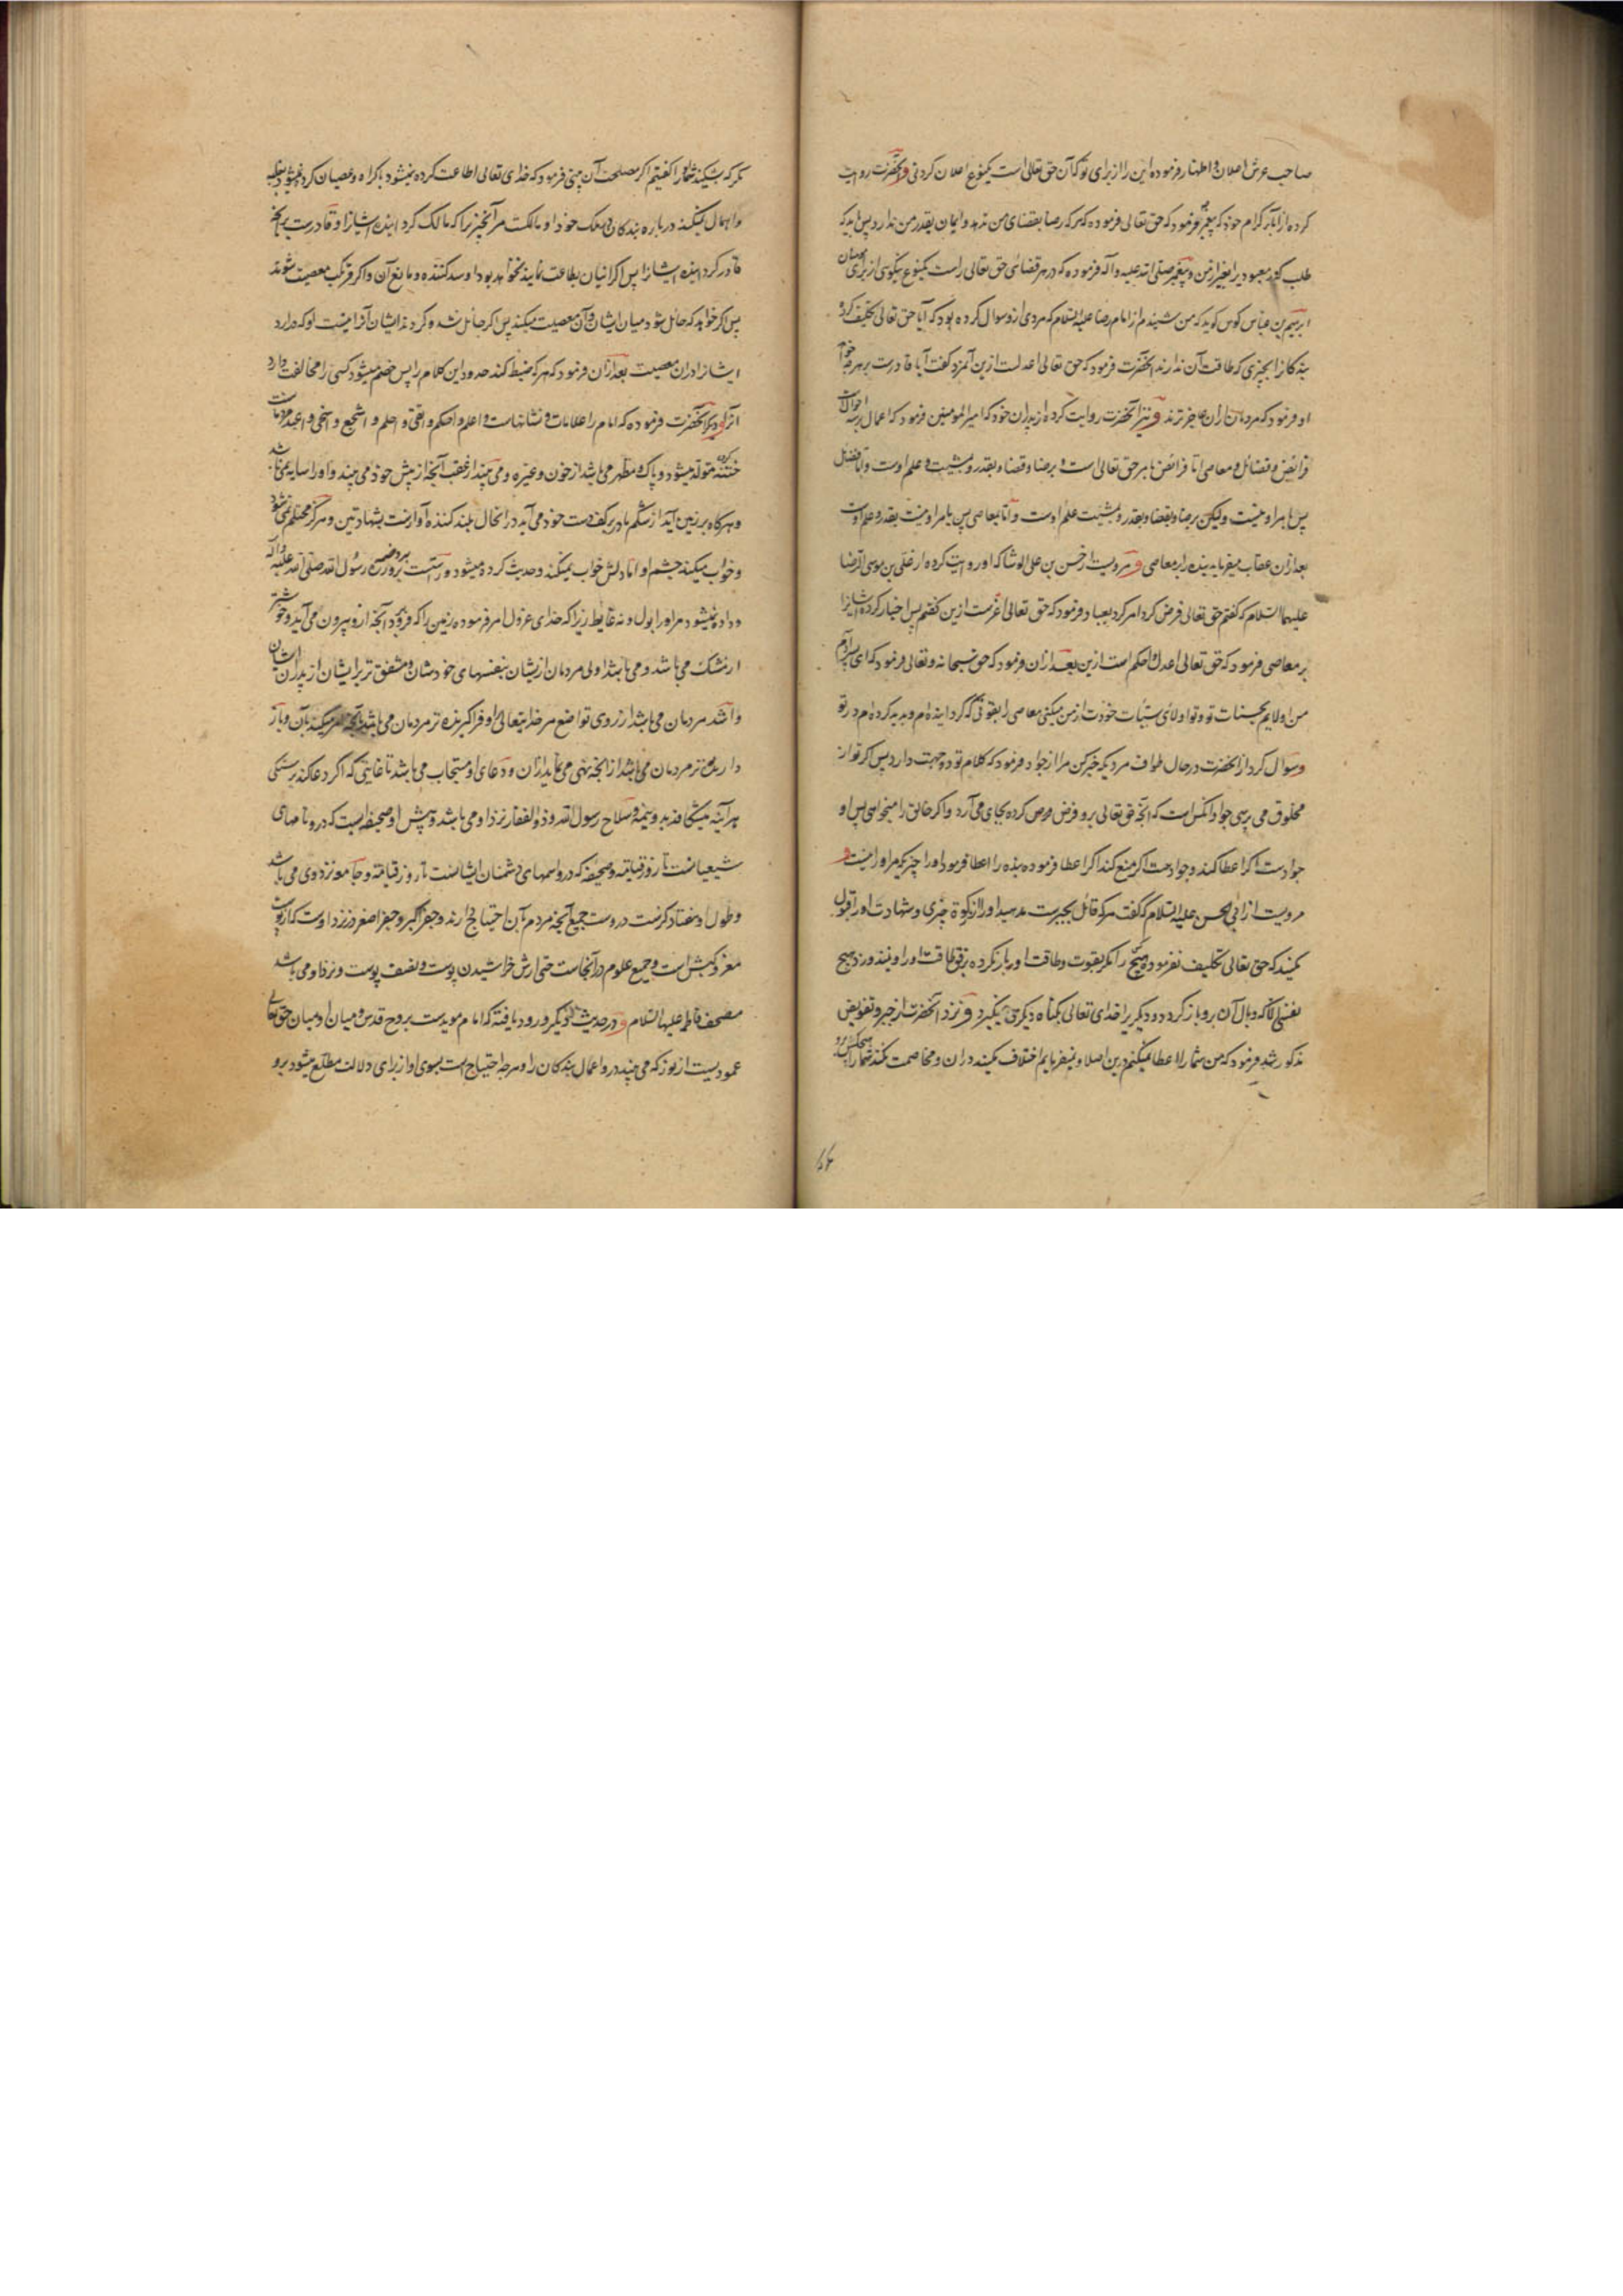 صاحب عرش اعلان و اظهار فرموده این را از برای تو که آن حق تعالی است یکنوع اعلان کردنی و آنحضرت روایت
کرده از آباء کرام خود که پیغمبر فرمود که حق تعالی فرموده که هر که رضا بقضای من ندهد و ایمان بقدر من ندارد پس باید که
طلب کند معبودیرا بغیر از من و پیغمبر صلی الله علیه و آله فرموده که در هر قضائی حق تعالی راست یکنوع نیکوئی از برای مؤمنان
ابرهیم بن عباس گوید که من شنیدم از امام رضا علیه السلام که مردی ازو سوال کرده بود که آیا حق تعالی تکلیف کرد
بندگانرا بچیزی که طاقت آن ندارند آنحضرت فرمود که حق تعالی اعدلست ازین آنمرد گفت آیا قادرست بر هر چه خواهد
او فرمود که مردمان از ان عاجزترند و نیز آنحضرت روایت کرده از پدران خود که امیر المومنین فرمود که اعمال بر سه احوالست
فرائض و فضائل و معاصی اما فرائض بامر حق تعالی است و برضا و قضاء و بقدر و مشیت و علم اوست و اما فضائل
پس بامر او نیست ولیکن برضا و بقضا و بقدر و بمشیت علم اوست و اما معاصی پس بامر او نیست بقدر و علم اوست
بعد از ان عقاب میفرماید بنده را بر معاصی و مرویست از حسن بن علی الوشا که او روایت کرده از علی بن موسی الرضا
علیهما السلام که گفتم حق تعالی فرض کرد امر کرد بعباد فرمود که حق تعالی اعزست ازین گفتم پس اجبار کرده ایشانرا
بر معاصی فرمود که حق تعالی اعدل و احکم است ازین بعد از ان فرمود که حق سبحانه و تعالی فرمود که ای پسر آدم
من اولایم بحسنات تو و تو اولای سیّئات خودت از من میکنی معاصی را بقوتی که گردانیده‌ام و پدید کرده‌ام در تو
و سوال کرد از آنحضرت در حال طواف مردی که خبر کن مرا از جواد فرمود که کلام تو دو جهت دارد پس اگر تو از
مخلوق می پرسی جواد آنکس است که آنچه حق تعالی برو فرض کرده بجای می آرد و اگر خالق را میخواهی پس او
جوادست اگر اعطا کند و جوادست اگر منع کند اگر اعطا فرموده بنده را اعطا فرمود او را چیزیکه مر او را نیست و
مرویست از ابی الحسن علیه السلام که گفت هر که قائل بجبرست مدهید او را از زکوة چیزی و شهادت او را قبول
نکنید که حق تعالی تکلیف نفرموده هیچ را مگر بقوت و طاقت او و بار نکرده بر فوق طاقت او را و نیندوزد هیچ
نفسی الا که وبال آن برو باز گردد و دیگر یرا خدای تعالی بگناه دیگری نمیگیرد و نزد آنحضرت از جبر و تفویض
مذکور شد فرمود که من شما را اعطا میکنم درین اصلا و نمیفرمایم اختلاف نکنید دران و مخاصمت نکند شما را هیچکس برو
مگر که بشکنید او را گفتیم اگر مصلحت آن بینی فرمود که خدای تعالی اطاعت کرده نمیشود باکراه و عصیان کرده نمیشود بغلبه
و اهمال نمیکند در باره بندگان در ملک خود او مالکست مر آنچیز را که مالک گردانیده ایشانرا و قادرست بر آنچه
قادر گردانیده ایشانرا پس اگر ایشان بطاعت نمایند نخواهد بود او سد کننده و مانع آن و اگر مرتکب معصیت شوند
پس اگر خواهد که حائل شود میان ایشان و آن معصیت میکند پس اگر حائل نشد و کردند ایشان آنرا نیست او که درآرد
ایشانرا دران معصیت بعد از ان فرمود که هر که ضبط کند حدود این کلام را پس خصم میشود کسی را مخالفت دارد
آنرا و دیگر آنحضرت فرموده که امام را علامات و نشانهاست و اعلم و احکم و اتقی و احلم و اشجع و اسخی و اعبد مردمانست
ختنه کرده متولد میشود و پاک و مطهر می باشد از خون و غیره و می بیند از عقب آنچه از پیش خود می بیند و او را سایه نمی باشد
و هرگاه بر زمین آید از شکم مادر بر کف دست خود می آید در انحال بلند کننده آواز است بشهادتین و هرگز محتلم نمی شود
و خواب میکند چشم او اما دلش خواب نمیکند و حدیث کرده میشود و راست برو زره رسول الله صلی الله علیه و آله
و داده نمیشود مر او را بول و نه غایط زیرا که خدای عز و جل امر فرموده زمین را که فرو برد آنچه ازو بیرون می آید و خوشبوتر
از مشک می باشد و می باشد اولی مردمان از یشان بنفسهای خودشان و مشفق تر بر ایشان از پدران ایشان
و اشد مردمان می باشد از روی تواضع مر خدا یتعالی را و فرا گیرنده تر مردمان می باشد بآنچه امر میکند بآن و باز
دارنده تر مردمان می باشد از آنچه نهی می نماید ازان و دعای او مستجاب می باشد تا غایتی که اگر دعا کند بر سنگی
هر آینه میشکافد بدو نیمه و سلاح رسول الله و ذو الفقار نزد او می باشد و پیش او صحیفه ایست که درو نامهای
شیعیانست تا روز قیامت و صحیفه که درو اسمهای دشمنان ایشانست تا روز قیامت و جامعه نزد وی می باشد
و طول او هفتاد گزست دروست جمیع آنچه مردم بآن احتیاج دارند و جفر اکبر و جفر اصغر در نزد اوست که از پوست
معز و کبش است و جمیع علوم در آنجاست حتی ارش خراشیدن پوست و نصف پوست و نزد او می باشد
مصحف فاطمه علیها السلام و در حدیث دیگر ورود یافته که امام مویدست بروح قدس و میان او و میان حق تعالی
عمودیست از نور که می بیند درو اعمال بندگان را و هر چه احتیاج است بسوی او از برای دلالت مطلع میشود برو